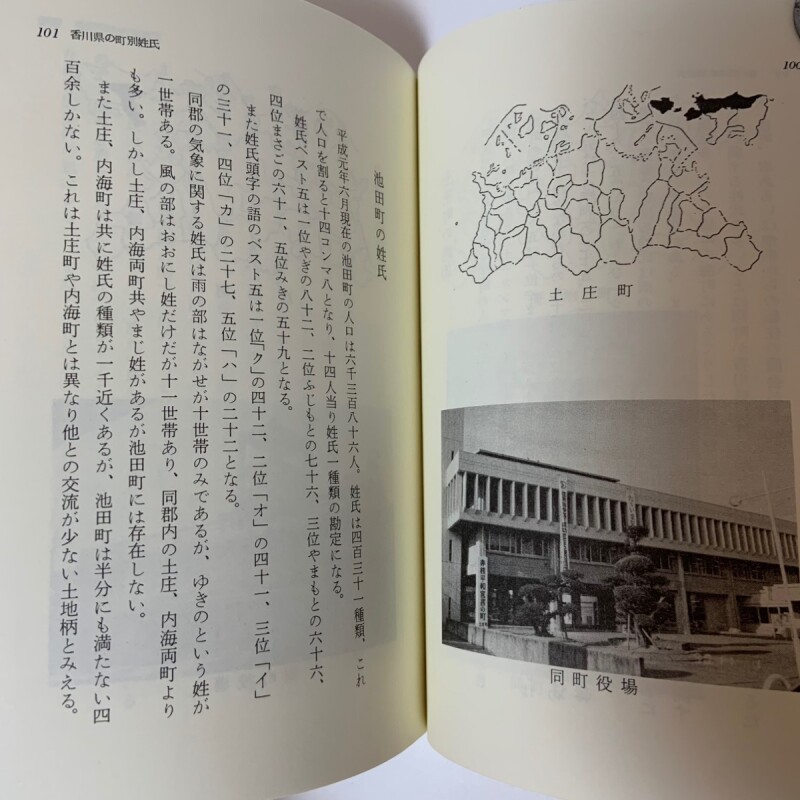 100
土庄町
同町役場
101 香川県の町別姓氏
池田町の姓氏
平成元年六月現在の池田町の人口は六千三百八十六人。姓氏は四百三十一種類、これ
で人口を割ると十四コンマ八となり、十四人当り姓氏一種類の勘定になる。
姓氏ベスト五は一位やぎの八十二、二位ふじもとの七十六、三位やまもとの六十六、
四位まさごの六十一、五位みきの五十九となる。
また姓氏頭字の語のベスト五は一位「ク」の四十二、二位「オ」の四十一、三位「イ」
の三十一、四位「カ」の二十七、五位「ハ」の二十二となる。
同郡の気象に関する姓氏は雨の部はながせが十世帯のみであるが、ゆきのという姓が
一世帯ある。風の部はおおにし姓だけだが十一世帯あり、同郡内の土庄、内海両町より
も多い。しかし土庄、内海両町共やまじ姓があるが池田町には存在しない。
また土庄、内海町は共に姓氏の種類が一千近くあるが、池田町は半分にも満たない四
百余しかない。これは土庄町や内海町とは異なり他との交流が少ない土地柄とみえる。